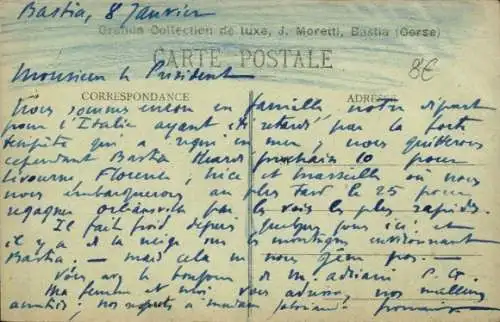 Bastia, 8 Janvier
Grande Collection de luxe, J. Moretti, Bastia (Corse)
CARTE POSTALE
8€
Monsieur le Président
CORRESPONDANCE ADRESSE
Nous sommes encore en famille, notre départ
pour l'Italie ayant été retardé par la forte
tempête qui a régné en mer, nous quitterons
cependant Bastia Mardi prochain 10 pour
Livourne, Florence, Nice et Marseille où nous
nous embarquerons au plus tard le 25 pour
regagner Orléansville par les voies les plus rapides.
Il fait froid depuis quelques jours ici, et
il y a de la neige sur les montagnes environnant
Bastia. — mais cela ne nous gêne pas. —
Vous avez le bonjour de M. Adriani P. G.
Ma femme et moi vous adressons, nos meilleures
amitiés, nos respects à madame